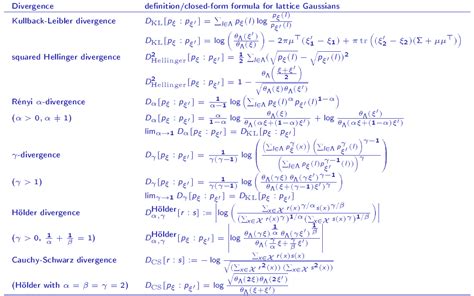 Divergence definition/closed-form formula for lattice Gaussians
Kullback-Leibler divergence D_KL[p_ξ : p_ξ′] = ∑_{l∈Λ} p_ξ(l) log p_ξ(l)/p_ξ′(l)
D_KL[p_ξ : p_ξ′] = log(θ_Λ(ξ′)/θ_Λ(ξ)) − 2πμ^⊤(ξ′_1 − ξ_1) + π tr((ξ′_2 − ξ_2)(Σ + μμ^⊤))
squared Hellinger divergence D²_Hellinger[p_ξ : p_ξ′] = 1/2 ∑_{l∈Λ}(√p_ξ(l) − √p_ξ′(l))²
D²_Hellinger[p_ξ : p_ξ′] = 1 − θ_Λ((ξ+ξ′)/2)/√(θ_Λ(ξ)θ_Λ(ξ′))
Rényi α-divergence D_α[p_ξ : p_ξ′] = 1/(α−1) log(∑_{l∈Λ} p_ξ(l)^α p_ξ′(l)^{1−α})
(α > 0, α ≠ 1) D_α[p_ξ : p_ξ′] = α/(1−α) log θ_Λ(ξ)/θ_Λ(αξ+(1−α)ξ′) + log θ_Λ(ξ′)/θ_Λ(αξ+(1−α)ξ′)
lim_{α→1} D_α[p_ξ : p_ξ′] = D_KL[p_ξ : p_ξ′]
γ-divergence D_γ[p_ξ : p_ξ′] = 1/(γ(γ−1)) log((∑_{l∈Λ} p_ξ^γ(x))(∑_{l∈Λ} p_ξ′^γ(l))^{γ−1}/(∑_{l∈Λ} p_ξ(l)p_ξ′^{γ−1}(l))^γ)
(γ > 1) D_γ[p_ξ : p_ξ′] = 1/(γ(γ−1)) log(θ_Λ(γξ) θ_Λ(γξ′)^{γ−1}/θ_Λ(ξ+(γ−1)ξ′)^γ)
lim_{γ→1} D_γ[p_ξ : p_ξ′] = D_KL[p_ξ : p_ξ′]
Hölder divergence D^Hölder_{α,γ}[r : s] := |log(∑_{x∈X} r(x)^{γ/α}s(x)^{γ/β}/((∑_{x∈X} r(x)^γ)^{1/α}(∑_{x∈X} s(x)^γ)^{1/β}))|
(γ > 0, 1/α + 1/β = 1) D^Hölder_{α,γ}[p_ξ : p_ξ′] = |log θ_Λ(γξ)^{1/α} θ_Λ(γξ′)^{1/β}/θ_Λ(γ/α ξ + γ/β ξ′)|
Cauchy-Schwarz divergence D_CS[r : s] := − log ∑_{x∈X} r(x)s(x)/√((∑_{x∈X} r²(x))(∑_{x∈X} s²(x)))
(Hölder with α = β = γ = 2) D_CS[p_ξ : p_ξ′] = log √(θ_Λ(2ξ)θ_Λ(2ξ′))/θ_Λ(ξ+ξ′)